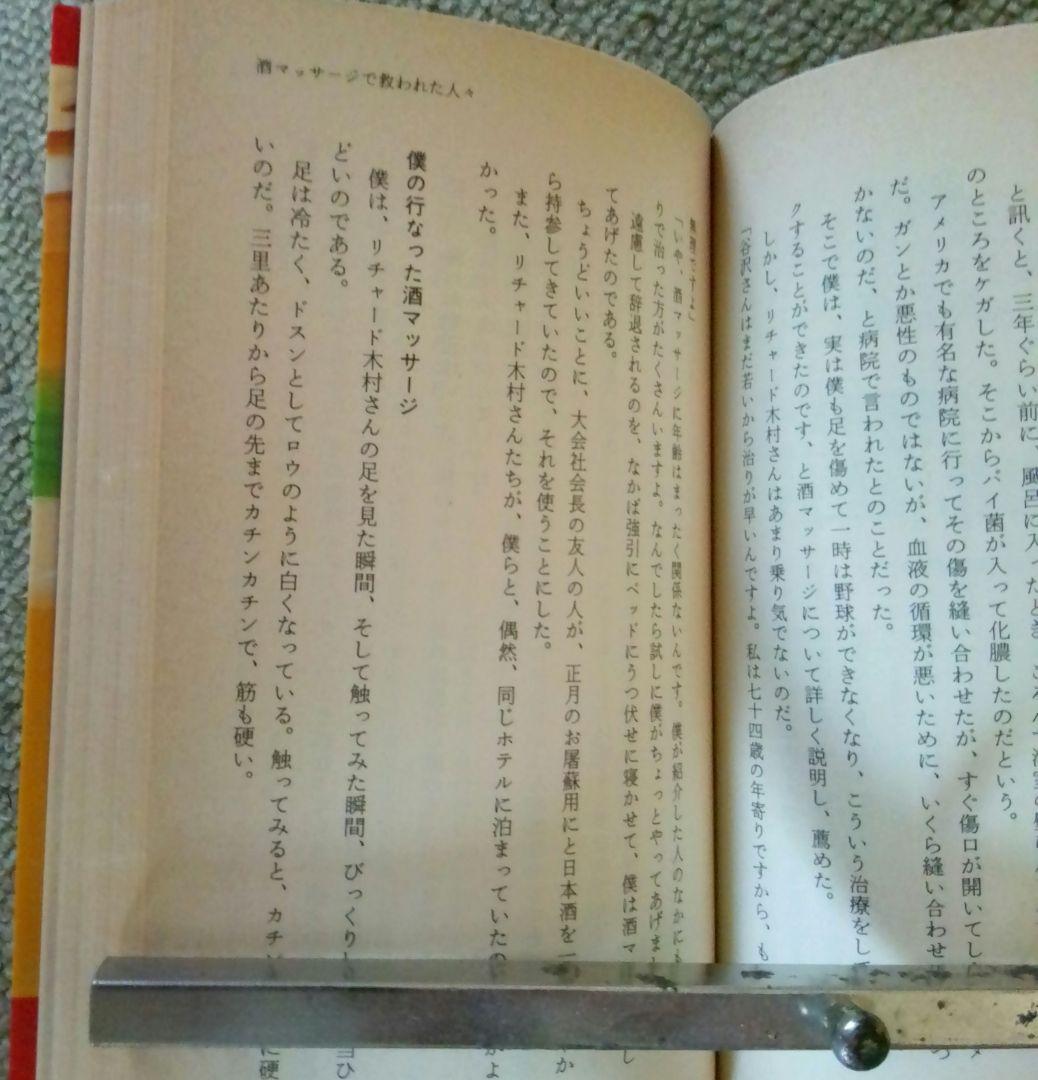 と訊くと、三年ぐらい前に、風呂に入ったとき、
のところをケガした。そこからバイ菌が入って化膿したのだという。
アメリカでも有名な病院に行ってその傷を縫い合わせたが、すぐ傷口が開いてし
だ。ガンとか悪性のものではないが、血液の循環が悪いために、いくら縫い合わせ
かないのだ、と病院で言われたとのことだった。
そこで僕は、実は僕も足を傷めて一時は野球ができなくなり、こういう治療をして
クすることができたのです、と酒マッサージについて詳しく説明し、薦めた。
しかし、リチャード木村さんはあまり乗り気でないのだ。
「谷沢さんはまだ若いから治りが早いんですよ。私は七十四歳の年寄りですから、も
無理ですよ」
「いや、酒マッサージに年齢はまったく関係ないんです。僕が紹介した人のなかにも
りで治った方がたくさんいますよ。なんでしたら試しに僕がちょっとやってあげまし
遠慮して辞退されるのを、なかば強引にベッドにうつ伏せに寝かせて、僕は酒マ
てあげたのである。
ちょうどいいことに、大会社会長の友人の人が、正月のお屠蘇用にと日本酒を一
ら持参してきていたので、それを使うことにした。
また、リチャード木村さんたちが、僕らと、偶然、同じホテルに泊まっていたの
かった。
酒マッサージで救われた人々
僕の行なった酒マッサージ
僕は、リチャード木村さんの足を見た瞬間、そして触ってみた瞬間、びっくりし
どいのである。
足は冷たく、ドスンとしてロウのように白くなっている。触ってみると、カチ
いのだ。三里あたりから足の先までカチンカチンで、筋も硬い。